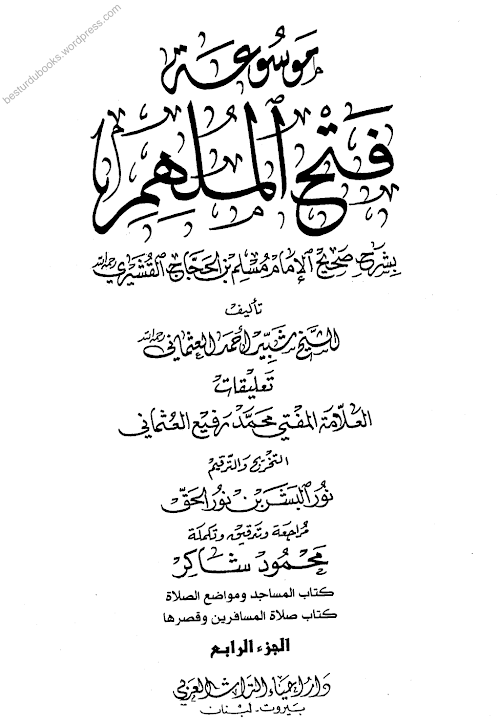 besturdubooks.wordpress.com
موسوعة
فتح الملهم
بشرح صحيح الإمام مسلم بن الحجاج القشيري رحمه الله
تأليف
الشيخ شبير أحمد العثماني رحمه الله
تعليقات
العلامة المفتي محمد رفيع العثماني
التخريج والترقيم
نور البشر بن نور الحق
مراجعة وتدقيق وتكملة
محمود شاكر
كتاب المساجد ومواضع الصلاة
كتاب صلاة المسافرين وقصرها
الجزء الرابع
دار إحياء التراث العربي
بيروت - لبنان